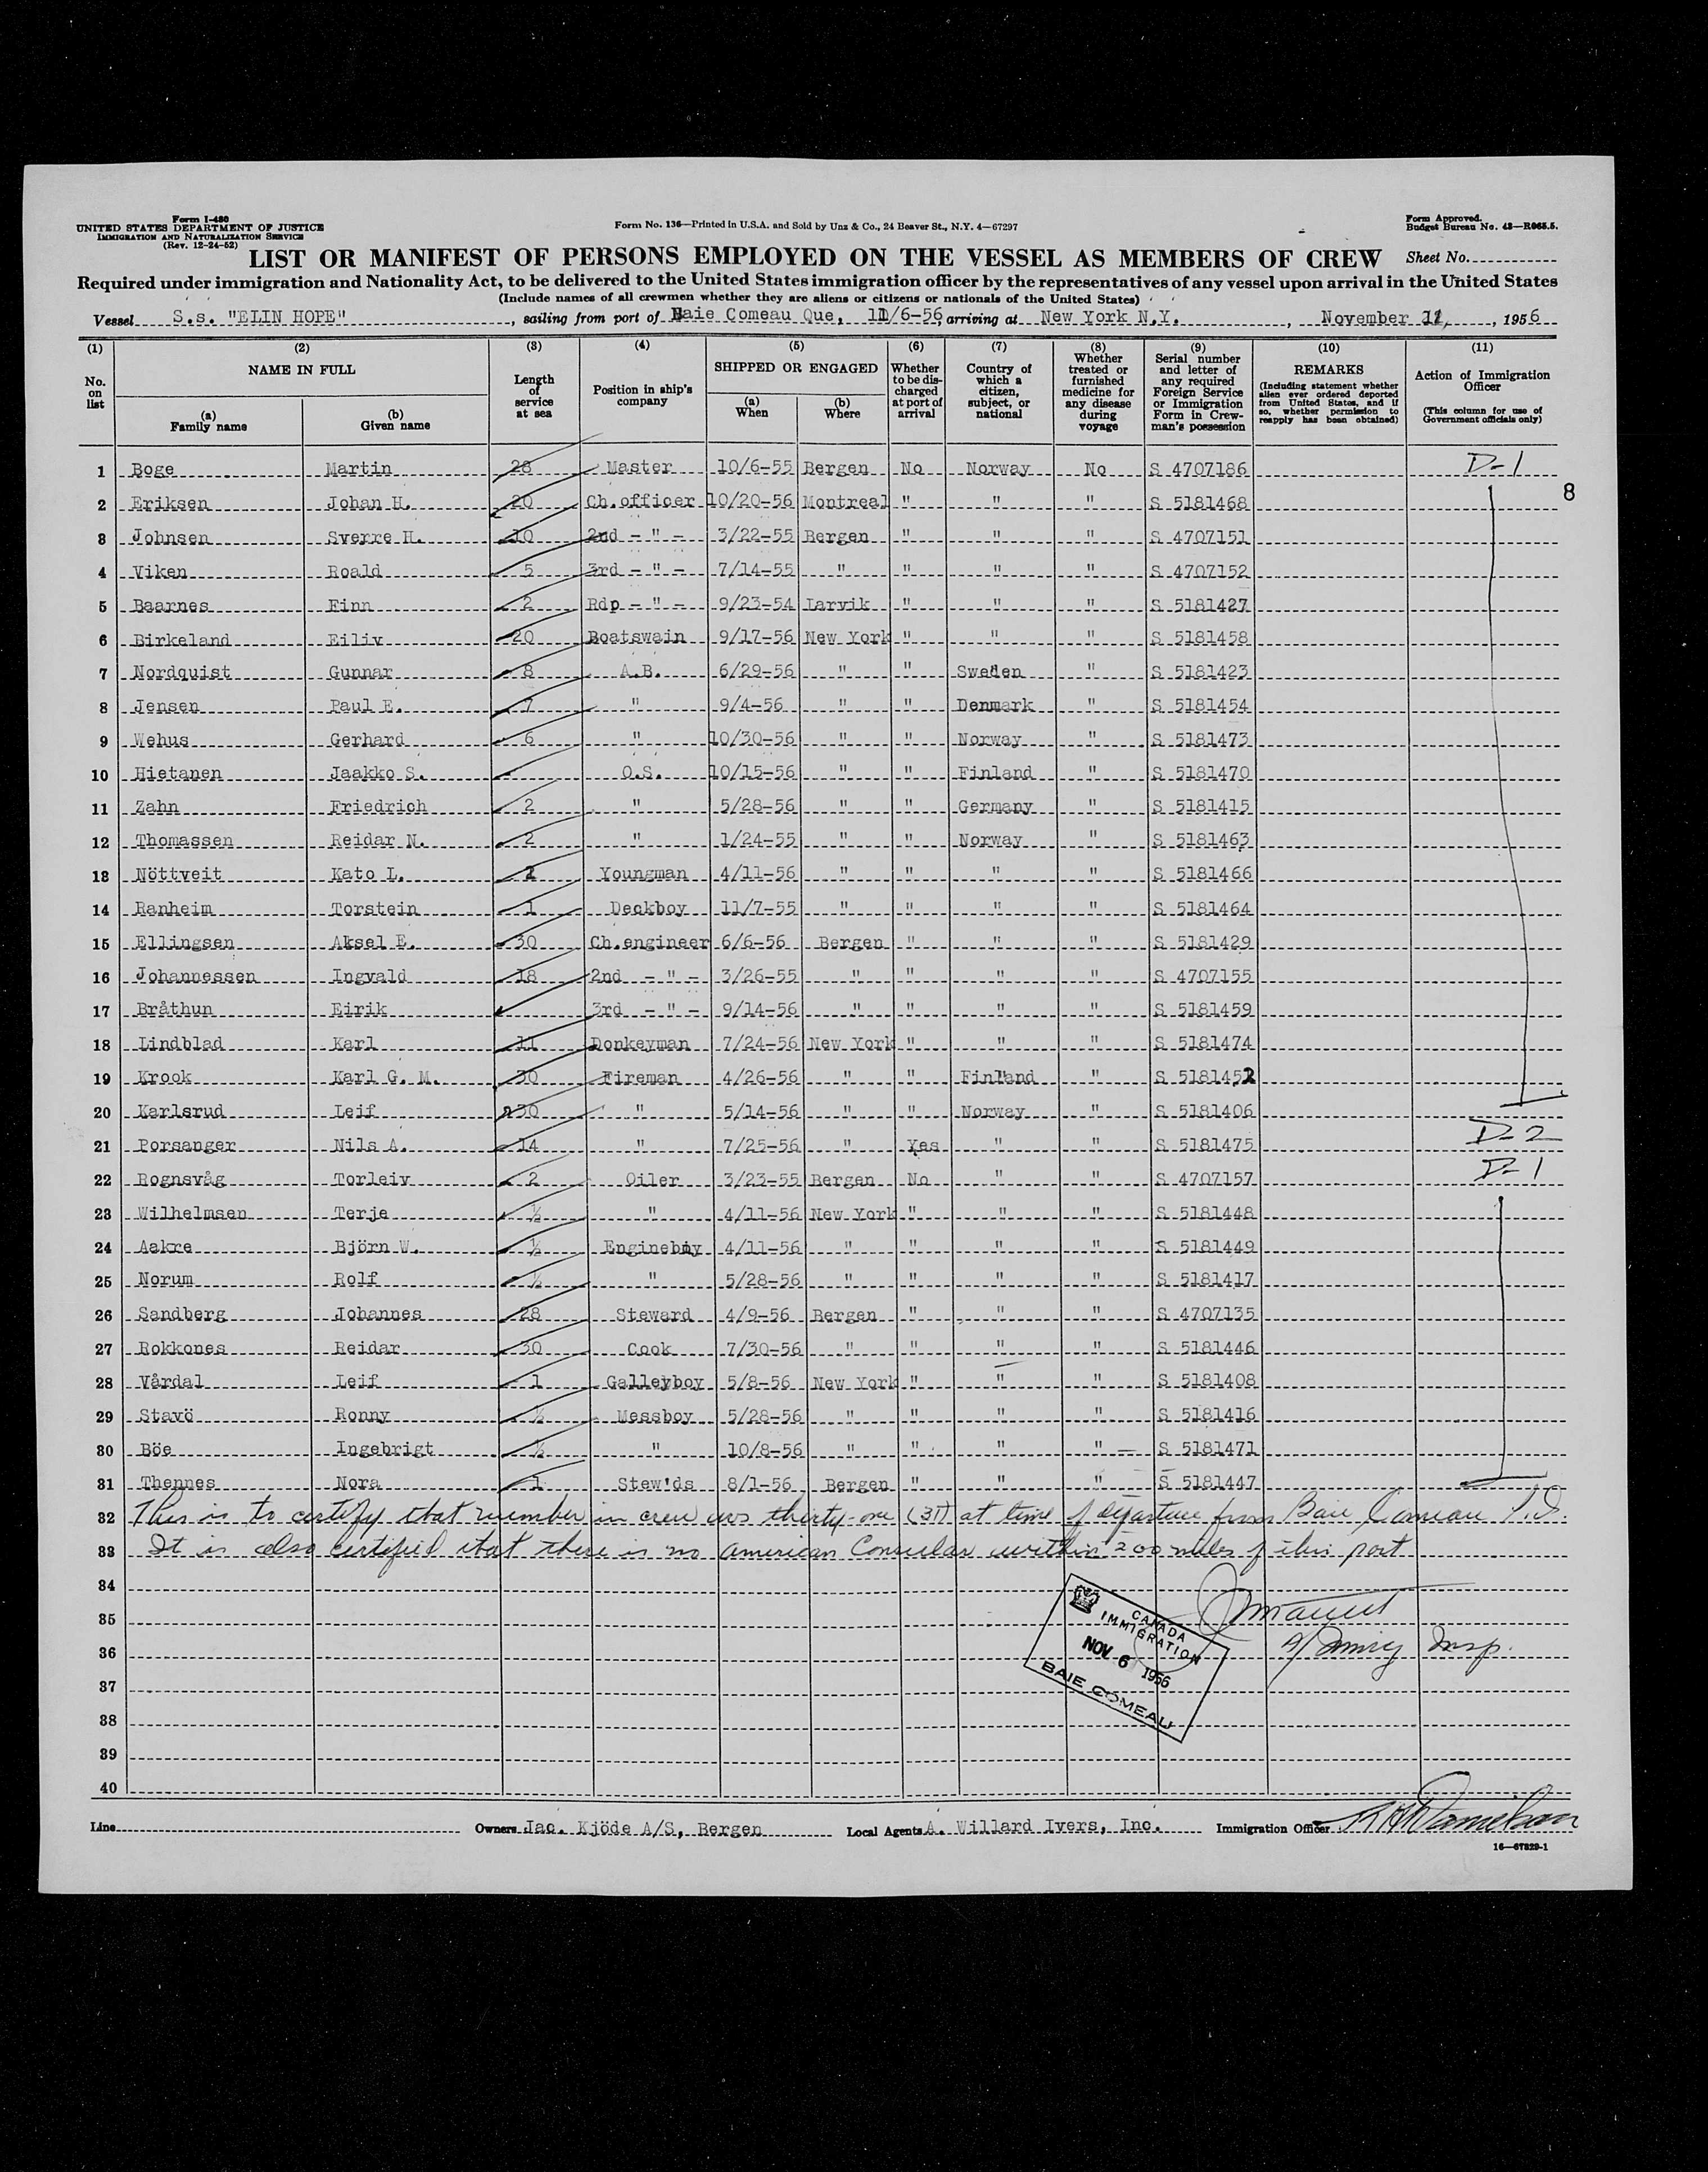 Form I-480
UNITED STATES DEPARTMENT OF JUSTICE
IMMIGRATION AND NATURALIZATION SERVICE
(Rev. 12-24-52)
Form No. 136—Printed in U.S.A. and Sold by Unz & Co., 24 Beaver St., N.Y. 4—67297
Form Approved.
Budget Bureau No. 43—R065.5.
LIST OR MANIFEST OF PERSONS EMPLOYED ON THE VESSEL AS MEMBERS OF CREW Sheet No.
Required under immigration and Nationality Act, to be delivered to the United States immigration officer by the representatives of any vessel upon arrival in the United States
(Include names of all crewmen whether they are aliens or citizens or nationals of the United States)
Vessel S.s. "ELIN HOPE", sailing from port of Baie Comeau Que, 11/6-56, arriving at New York N.Y., November 11, 1956
(1) No. on list
(2) NAME IN FULL (a) Family name (b) Given name
(3) Length of service at sea
(4) Position in ship's company
(5) SHIPPED OR ENGAGED (a) When (b) Where
(6) Whether to be discharged at port of arrival
(7) Country of which a citizen, subject, or national
(8) Whether treated or furnished medicine for any disease during voyage
(9) Serial number and letter of any required Foreign Service or Immigration Form in Crewman's possession
(10) REMARKS (Including statement whether alien ever ordered deported from United States, and if so, whether permission to reapply has been obtained)
(11) Action of Immigration Officer (This column for use of Government officials only)
1 Boge Martin 28 Master 10/6-55 Bergen No Norway No S 4707186 D-1
2 Eriksen Johan H. 20 Ch.officer 10/20-56 Montreal " " " S 5181468 8
3 Johnsen Sverre H. 10 2nd - " - 3/22-55 Bergen " " " S 4707151
4 Viken Roald 5 3rd - " - 7/14-55 " " " " S 4707152
5 Baarnes Finn 2 Rdp - " - 9/23-54 Larvik " " " S 5181427
6 Birkeland Eiliv 20 Boatswain 9/17-56 New York " " " S 5181458
7 Nordquist Gunnar 8 A.B. 6/29-56 " " Sweden " S 5181423
8 Jensen Paul E. 7 " 9/4-56 " " Denmark " S 5181454
9 Wehus Gerhard 6 " 10/30-56 " " Norway " S 5181473
10 Hietanen Jaakko S. O.S. 10/15-56 " " Finland " S 5181470
11 Zahn Friedrich 2 " 5/28-56 " " Germany " S 5181415
12 Thomassen Reidar N. 2 " 1/24-55 " " Norway " S 5181463
13 Nöttveit Kato L. Youngman 4/11-56 " " " " S 5181466
14 Ranheim Torstein 1 Deckboy 11/7-55 " " " " S 5181464
15 Ellingsen Aksel E. 30 Ch.engineer 6/6-56 Bergen " " " S 5181429
16 Johannessen Ingvald 18 2nd - " - 3/26-55 " " " " S 4707155
17 Bråthun Eirik 3rd - " - 9/14-56 " " " " S 5181459
18 Lindblad Karl 11 Donkeyman 7/24-56 New York " " " S 5181474
19 Krook Karl G. M. 30 Fireman 4/26-56 " " Finland " S 5181452
20 Karlsrud Leif 30 " 5/14-56 " " Norway " S 5181406
21 Porsanger Nils A. 14 " 7/25-56 " Yes " " S 5181475 D-2
22 Rognsvåg Torleiv 2 Oiler 3/23-55 Bergen No " " S 4707157 D-1
23 Wilhelmsen Terje ½ " 4/11-56 New York " " " S 5181448
24 Aakre Björn W. ½ Engineboy 4/11-56 " " " " S 5181449
25 Norum Rolf ½ " 5/28-56 " " " " S 5181417
26 Sandberg Johannes 28 Steward 4/9-56 Bergen " " " S 4707135
27 Rokkones Reidar 30 Cook 7/30-56 " " " " S 5181446
28 Vårdal Leif 1 Galleyboy 5/8-56 New York " " " S 5181408
29 Stavö Ronny ½ Messboy 5/28-56 " " " " S 5181416
30 Böe Ingebrigt ½ " 10/8-56 " " " " S 5181471
31 Thennes Nora 1 Stew'ds 8/1-56 Bergen " " " S 5181447
32 This is to certify that number in crew was thirty-one (31) at time of departure from Baie Comeau P.Q.
33 It is also certified that there is no American Consular within 200 miles of this port
34
35
36 Insp.
37
38
39
40
CANADA
IMMIGRATION
NOV 6 1956
BAIE COMEAU
Line Owners Jac. Kjöde A/S, Bergen Local Agents A. Willard Ivers, Inc. Immigration Officer
16—67829-1